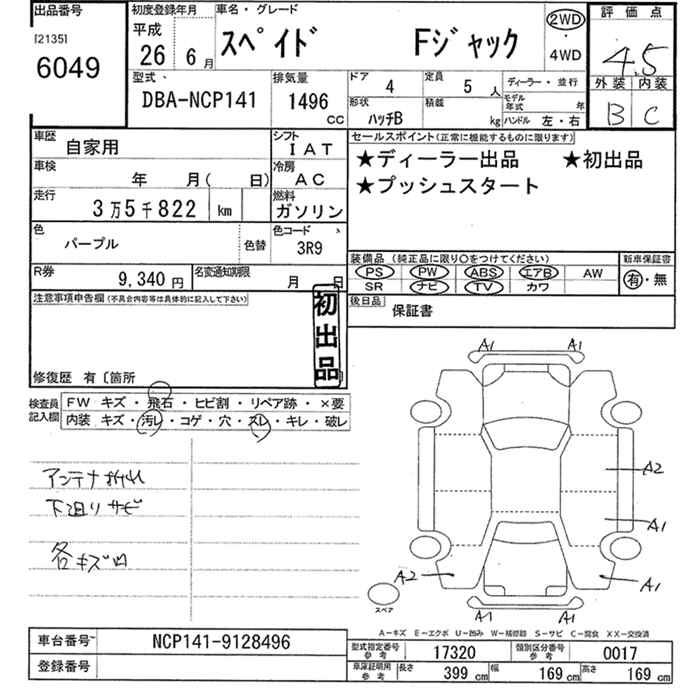 出品番号
[2135]
6049
初度登録年月
平成
26 年 6 月
車名・グレード
スペイド Fジャック
2WD
・
4WD
評価点
4.5
外装 内装
B C
型式
DBA-NCP141
排気量
1496
CC
ドア 4
定員 5 人
ディーラー・並行
形状 ハッチB
積載 kg
モデル年式 年
ハンドル 左・右
車歴 自家用
シフト IAT
車検 年 月( 日)
冷房 AC
走行 3万5千822 km
燃料 ガソリン
色 パープル
色替
色コード 3R9
R券 9,340 円
名変通知期限 月 日
セールスポイント(正常に機能するものに限ります)
★ディーラー出品 ★初出品
★プッシュスタート
装備品(純正品に限り○をつけてください)
PS PW ABS エアB AW
SR ナビ TV カワ
新車保証書
有・無
後日品 保証書
注意事項申告欄(不具合内容等は具体的に記入して下さい)
初出品
修復歴 有〔箇所
検査員記入欄
FW キズ・飛石・ヒビ割・リペア跡・×要
内装 キズ・汚レ・コゲ・穴・スレ・キレ・破レ
アンテナ折れ
下廻りサビ
各キズ凹
A1 A1
A2
A1
A2 A1
A1 A1
スペア
A-キズ E-エクボ U-凹み W-補修跡 S-サビ C-腐食 XX-交換済
車台番号 NCP141-9128496
登録番号
型式指定番号 参考 17320
類別区分番号 参考 0017
車庫証明用 参考 長さ 399 cm 幅 169 cm 高さ 169 cm